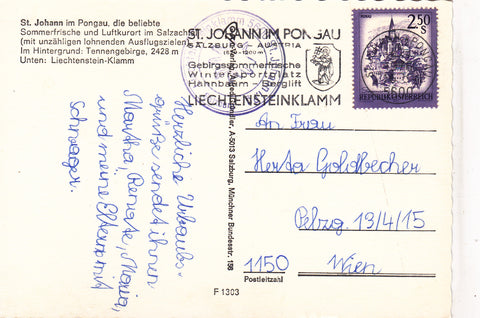 St. Johann im Pongau, die beliebte
Sommerfrische und Luftkurort im Salzachtal
(mit unzähligen lohnenden Ausflugszielen)
Im Hintergrund: Tennengebirge, 2428 m
Unten: Liechtenstein-Klamm
ST. JOHANN IM PONGAU
SALZBURG - AUSTRIA
Gebirgssommerfrische
Wintersportplatz
Hahnbaum - Sesellift
LIECHTENSTEINKLAMM
2.50
S
REPUBLIK ÖSTERREICH
5600
Herzliche Urlaubs-
grüße sendet ihnen
Martha, Renate, Maria,
und meine Eltern mit
Schwager.
A-5013 Salzburg, Münchner Bundesstr. 156
An Frau
Herta Goldbecher
Pelzg. 13/4/15
1150 Wien
Postleitzahl
F 1303